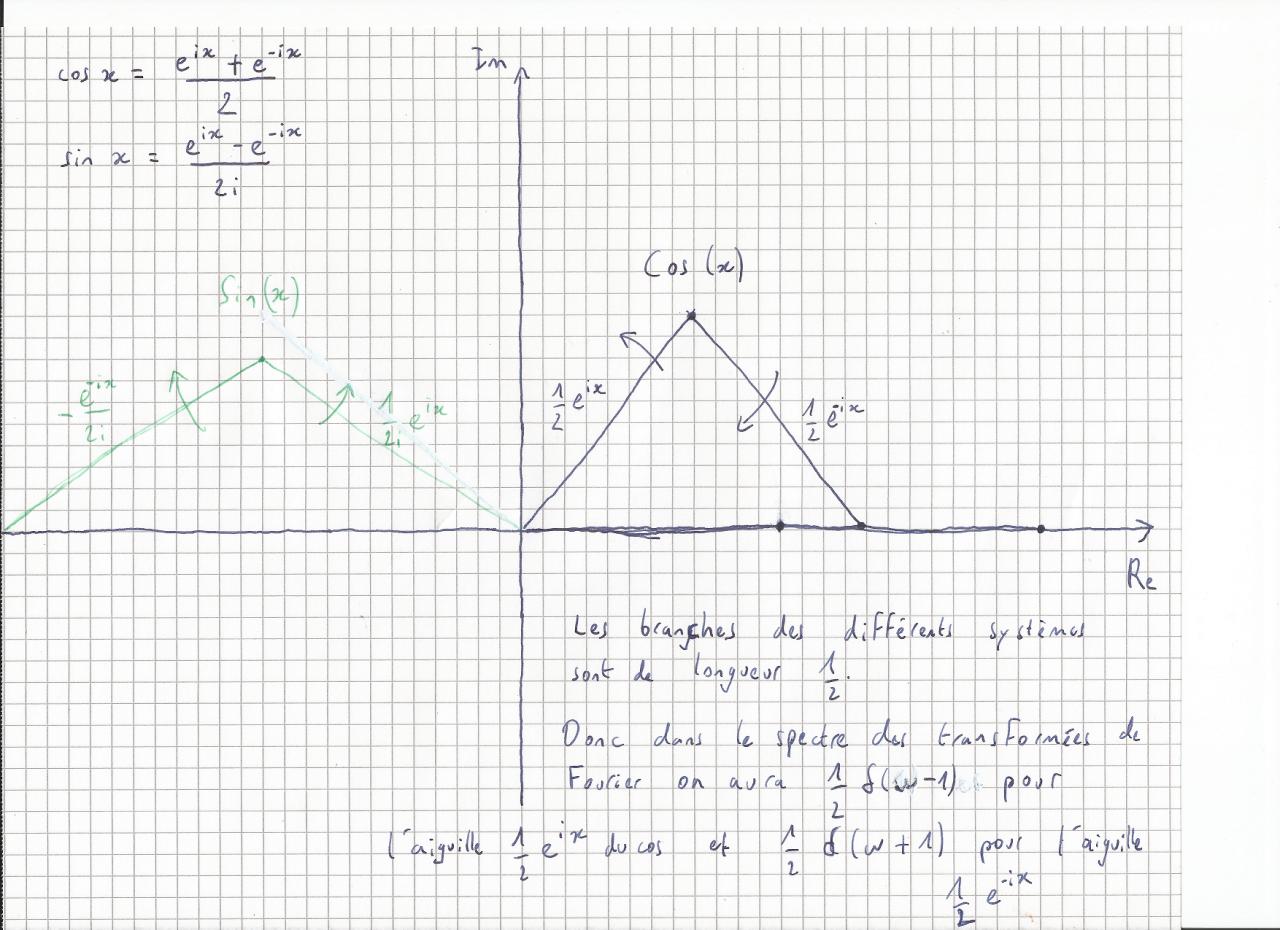 cos x = (e^{ix} + e^{-ix})/2
sin x = (e^{ix} - e^{-ix})/2i
Im
Cos (x)
Sin(x)
-e^{-ix}/2i
1/2i e^{ix}
1/2 e^{ix}
1/2 e^{-ix}
Re
Les branches des différents systèmes
sont de longueur 1/2.
Donc dans le spectre des transformées de
Fourier on aura 1/2 δ(ω-1) pour
l'aiguille 1/2 e^{ix} du cos et 1/2 δ(ω+1) pour l'aiguille
1/2 e^{-ix}